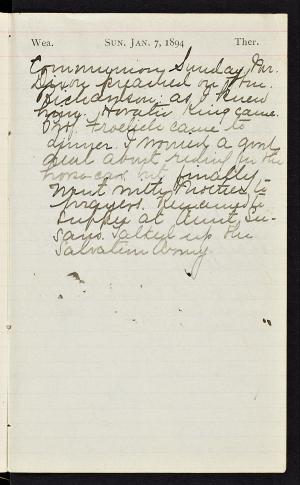 Wea. SUN. JAN. 7, 1894 Ther.
Communion Sunday. Mr.
Dixon preached on Mr.
Richardson, as I knew
him. Horatio King came.
Froelich came to
dinner. I worried a good
deal about riding in the
horse-car but finally
went with to
prayers. Remained to
supper at Aunt Su-
san's. Talked up the
Salvation Army.